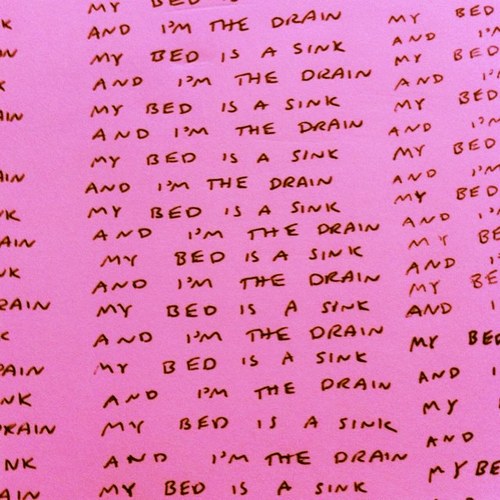 K
AIN
K
AIN
AIN
NK
AIN
NK
RAIN
K
RAIN
NK
RAIN
NK
AIN
MY BED IS A
AND I'M THE DRAIN
MY BED IS A SINK
AND I'M THE DRAIN
MY BED IS A SINK
AND I'M THE DRAIN
MY BED IS A SINK
AND I'M THE DRAIN
MY BED IS A SINK
AND I'M THE DRAIN
MY BED IS A SINK
AND I'M THE DRAIN
MY BED IS A SINK
AND I'M THE DRAIN
MY BED IS A SINK
AND I'M THE DRAIN
MY BED IS A SINK
AND I'M THE DRAIN
MY BED IS A SINK
MY BED
AND I'M
MY BED
AND I'
MY BED
AND I'M
MY BED
AND I'M
MY BED
AND I'
MY BE
AND I'
MY BE
AND I
MY BED
AND I
MY
AND
MY BE